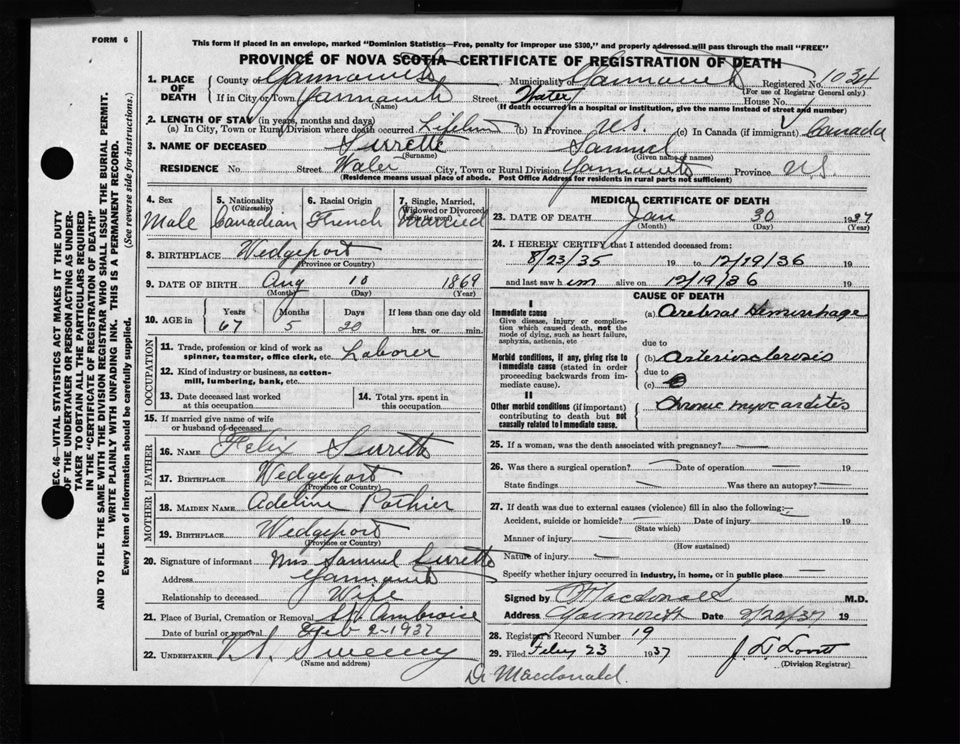 FORM 6
This form if placed in an envelope, marked "Dominion Statistics—Free, penalty for improper use $300," and properly addressed will pass through the mail "FREE"
PROVINCE OF NOVA SCOTIA—CERTIFICATE OF REGISTRATION OF DEATH
1. PLACE OF DEATH County of Yarmouth Municipality of Yarmouth Registered No. 1034
(For use of Registrar General only.)
If in City or Town Yarmouth Street Water House No.
(Name) (If death occurred in a hospital or institution, give the name instead of street and number)
2. LENGTH OF STAY (in years, months and days)
(a) In City, Town or Rural Division where death occurred (b) In Province N.S. (c) In Canada (if immigrant) Canada
3. NAME OF DECEASED Surette Samuel
(Surname) (Given name or names)
RESIDENCE No. Street Water City, Town or Rural Division Yarmouth Province N.S.
(Residence means usual place of abode. Post Office Address for residents in rural parts not sufficient)
4. Sex 5. Nationality (Citizenship) 6. Racial Origin 7. Single, Married, Widowed or Divorced
Male Canadian French Married
8. BIRTHPLACE Wedgeport
(Province or Country)
9. DATE OF BIRTH Aug 10 1869
(Month) (Day) (Year)
10. AGE in Years Months Days If less than one day old
67 5 20 hrs. or min.
OCCUPATION
11. Trade, profession or kind of work as spinner, teamster, office clerk, etc. Laborer
12. Kind of industry or business, as cotton-mill, lumbering, bank, etc.
13. Date deceased last worked at this occupation
14. Total yrs. spent in this occupation
15. If married give name of wife or husband of deceased
FATHER
16. NAME Felix Surette
17. BIRTHPLACE Wedgeport
(Province or Country)
MOTHER
18. MAIDEN NAME Adeline Pothier
19. BIRTHPLACE Wedgeport
(Province or Country)
20. Signature of informant Mrs Samuel Surette
Address Yarmouth
Relationship to deceased Wife
21. Place of Burial, Cremation or Removal St. Ambroise
Date of burial or removal Feb 2-1937
22. UNDERTAKER V.S. Sweeny
(Name and address)
MEDICAL CERTIFICATE OF DEATH
23. DATE OF DEATH Jan 30 1937
(Month) (Day) (Year)
24. I HEREBY CERTIFY that I attended deceased from:
8/23/35 19 to 12/19/36 19
and last saw him alive on 12/19/36 19
CAUSE OF DEATH
I
Immediate cause
Give disease, injury or complication which caused death, not the mode of dying, such as heart failure, asphyxia, asthenia, etc
(a) Cerebral Hemorrhage
due to
Morbid conditions, if any, giving rise to immediate cause (stated in order proceeding backwards from immediate cause).
(b) Arteriosclerosis
due to
(c)
II
Other morbid conditions (if important) contributing to death but not causally related to immediate cause.
Chronic myocarditis
25. If a woman, was the death associated with pregnancy?
26. Was there a surgical operation? Date of operation 19
State findings Was there an autopsy?
27. If death was due to external causes (violence) fill in also the following:
Accident, suicide or homicide? Date of injury 19
(State which)
Manner of injury
(How sustained)
Nature of injury
Specify whether injury occurred in industry, in home, or in public place
Signed by Macdonald M.D.
Address Yarmouth Date 2/20/37 19
28. Registrar's Record Number 19
29. Filed Feby 23 1937
(Division Registrar)
Dr Macdonald.
SEC. 46—VITAL STATISTICS ACT MAKES IT THE DUTY
OF THE UNDERTAKER OR PERSON ACTING AS UNDERTAKER TO OBTAIN ALL THE PARTICULARS REQUIRED
IN THE "CERTIFICATE OF REGISTRATION OF DEATH"
AND TO FILE THE SAME WITH THE DIVISION REGISTRAR WHO SHALL ISSUE THE BURIAL PERMIT.
WRITE PLAINLY WITH UNFADING INK. THIS IS A PERMANENT RECORD.
Every item of information should be carefully supplied. (See reverse side for instructions.)